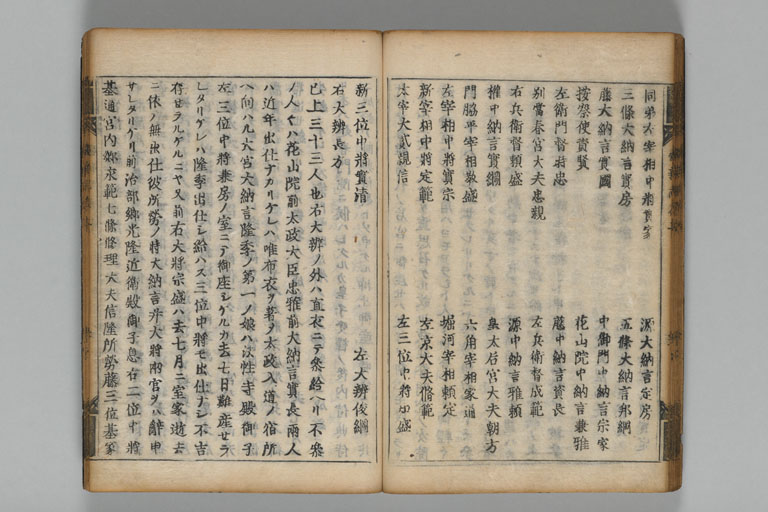 同弟六宰相中將實家　源大納言定房
三條大納言實房　五條大納言邦綱
藤大納言實國　中御門中納言宗家
按察使資賢　花山院中納言兼雅
左衛門督時忠　藤中納言資長
別當春宮大夫忠親　左兵衛督成範
右兵衛督頼盛　源中納言雅頼
權中納言實綱　皇太后宮大夫朝方
門脇平宰相教盛　六角宰相家通
左宰相中將實宗　堀河宰相頼定
新宰相中將定範　左京大夫脩範
太宰大貳親信　左三位中將知盛
新三位中將實清　左大辨俊綱
右大辨長方
已上三十三人也右大辨ノ外ハ直衣ニテ參給ヘリ不參
ノ人々ハ花山院前太政大臣忠雅前大納言實長兩人
ハ近年出仕ナカリケレハ唯布衣ヲ著ノ太政入道ノ宿所
ヘ向ハル六宮大納言隆季ノ第一ノ娘ハ法性寺殿御子
左三位中將兼房ノ室ニテ御座シケルカ去七日難産セラ
レタリケレハ隆季出仕シ給ハス三位中將モ出仕ナシ不吉
存セラルケルニヤ又前右大將宗盛ハ去七月ニ室家逝去
ニ依ノ無出仕彼所勞ノ時大納言并大將兩官ヲハ辭申
サレタリケリ前治部卿光隆近衛殿御子息右二位中將
基通宮内卿永範七條修理大夫信隆所勞藤三位基家